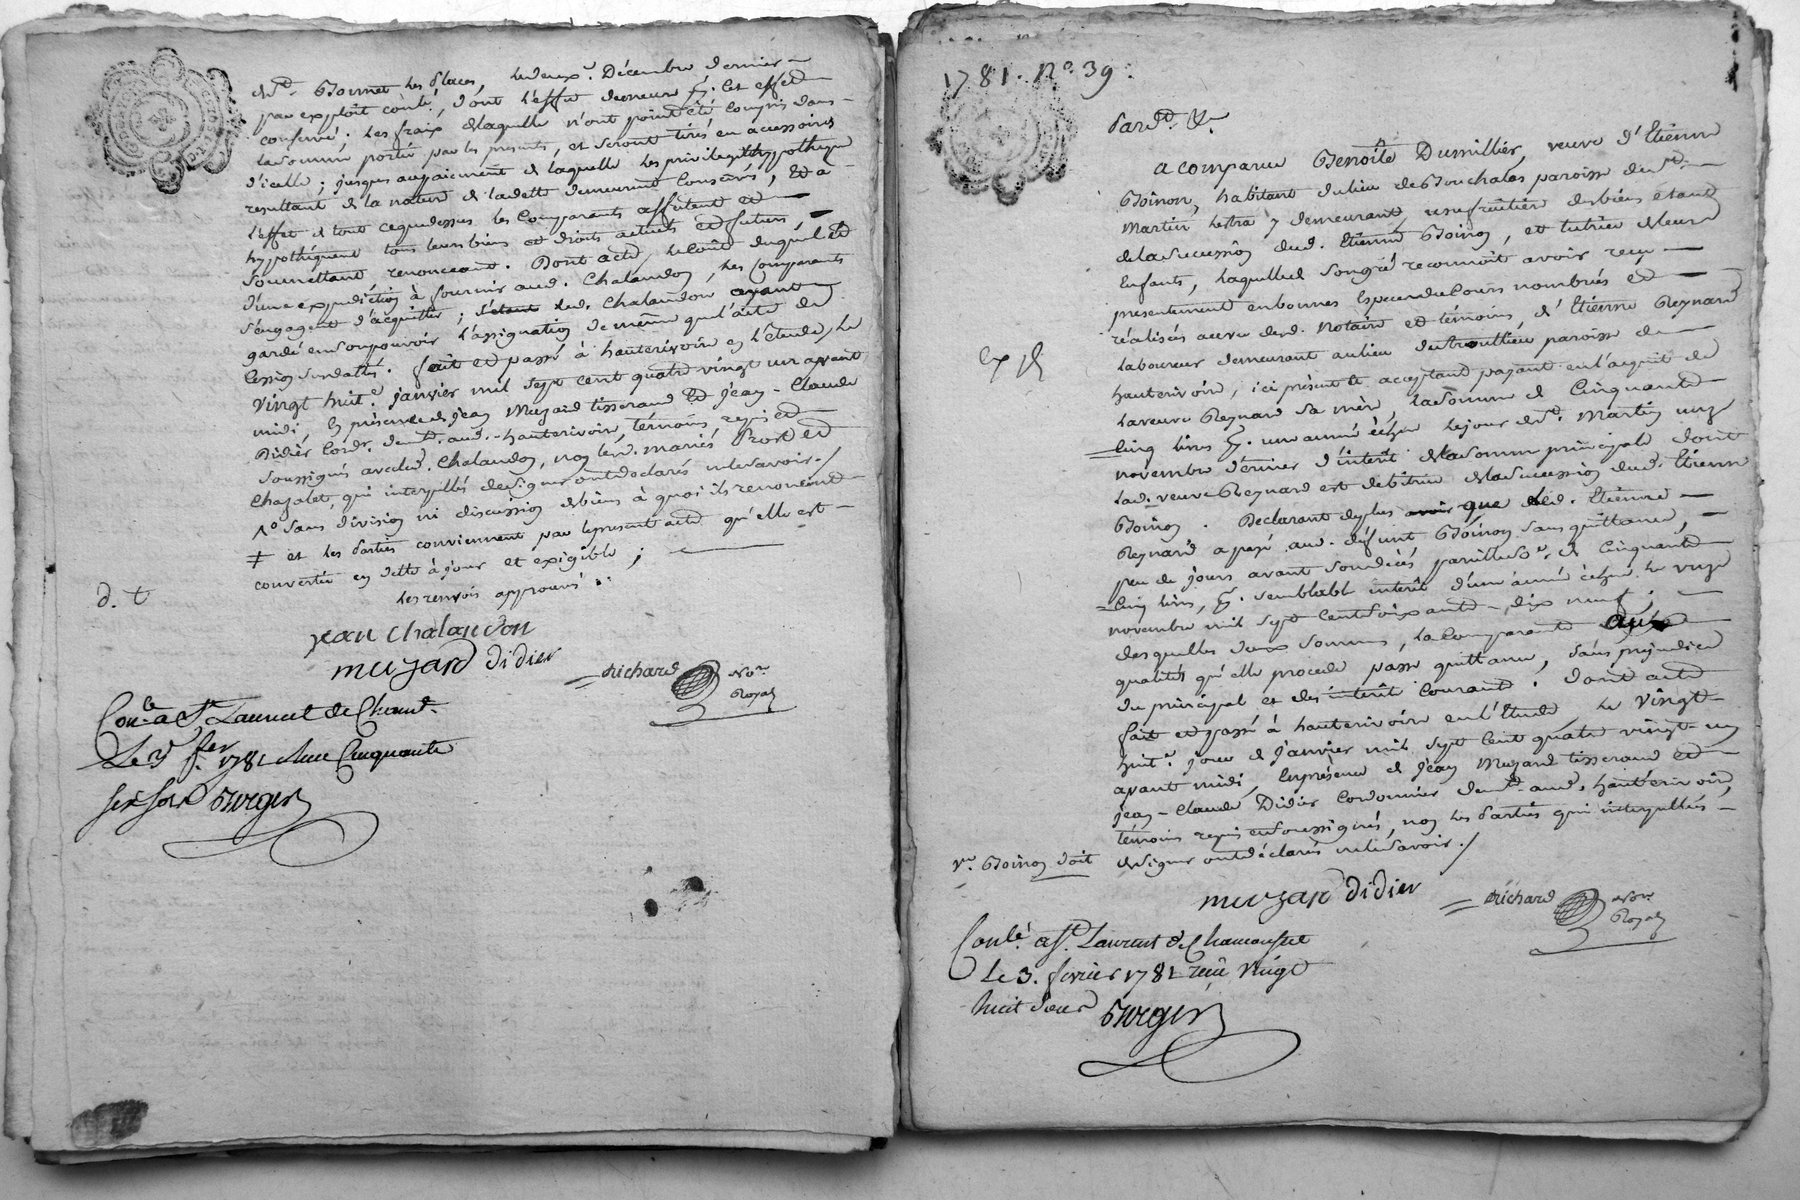 dud. Bonnet des places, du deux.e Décembre dernier
par exploit conlé, dont l'effet demeure pr. cet effet
conservé; les fraix de laquelle n'ont point été compris dans
la somme portée par les presents, et seront tirés en accessoires
d'icelle; jusques au paiement de laquelle les privileges et hypotheque
resultant de la nature de la dette demeurent conservés, Et à
l'effet de tout ce que dessus les Comparants affectent et
hypothéquent tous leurs biens et droits actuels et futurs,
Soumettant renonceant. Dont acte, le coût duquel et
d'une expédition à fournir aud. Chalandon, les Comparants
s'engagent d'acquitter; led. Chalandon ayant
gardé en son pouvoir l'assignation de même que l'acte de
Cession surdattés. fait et passé à hauterivoire en l'étude, le
vingt huit.e janvier mil sept cent quatre vingt un avant
midi, En présence de jean Muzard tisserand et jean-Claude
Didier Cordr. demt. aud. hauterivoire, témoins, requis et
soussignés avec led. Chalandon, non les d. mariés Prost et
Chazalet, qui interpellés de signer ont déclarés ne le savoir./
1° sans division ni discussion de biens à quoi ils renoncent
‡ et les parties conviennent par le present acte qu'elle est
convertie en dette à jour et exigible;
les renvois approuvés:
d. t
jean chalandon
muzard didier
Richard Nore.
Royal
Conlé a St. Laurent de Chamt.
Le 3 fer 1781 Recu Cinquante
six sols Burgin
1781. No. 39:
Pardt. &a
a comparu Benoîte Dumillier, veuve d'Etienne
Boinon, habitant du lieu de Bouchalas paroisse de st.
Martin Lestra y demeurant, usufruitière des biens étant
de la succession dud. Etienne Boinon, et tutrice de leurs
Enfants, laquelle de son gré reconnoit avoir reçu
présentement en bonnes Especes du Cours nombrées et
réalisées au vu desd. Notaire et témoins, d'Etienne Reynard
laboureur demeurant au lieu du trouillieu paroisse de
hauterivoire, ici présent et acceptant payant en l'acquit de
la veuve Reynard sa mère, la somme de Cinquante
Cinq livres pr. une année échue le jour de st. Martin onze
novembre dernier d'intérêt de la somme principale dont
lad. veuve Reynard est debitrice à la succession dud. Etienne
Boinon. Declarant de plus que led. Etienne
Reynard a payé aud. défunt Boinon sans quittance,
peu de jours avant son décès pareille so.e de Cinquante
Cinq livres, pr. semblable intérêt d'une année échue le onze
novembre mil sept cent soixante-dix neuf.
desquelles deux sommes, la Comparante aux
qualités qu'elle procede passe quittance, sans prejudice
du principal et des intérêt courant. dont acte
fait et passé à hauterivoire en l'étude le vingt
huit.e jour de janvier mil sept cent quatre vingt-un
avant midi, En présence de jean Muzard tisserand et
jean-Claude Didier Cordonnier demt. aud. hauterivoire,
témoins requis et soussignés, non les parties qui interpellées
de signer ont déclarés ne le savoir./
ve. Boinon doit
muzard didier
Richard Nore.
Royal
Conlé a St. Laurent de Chamousset
Le 3. fevrier 1781 reçu Vingt
huit sous Burgin